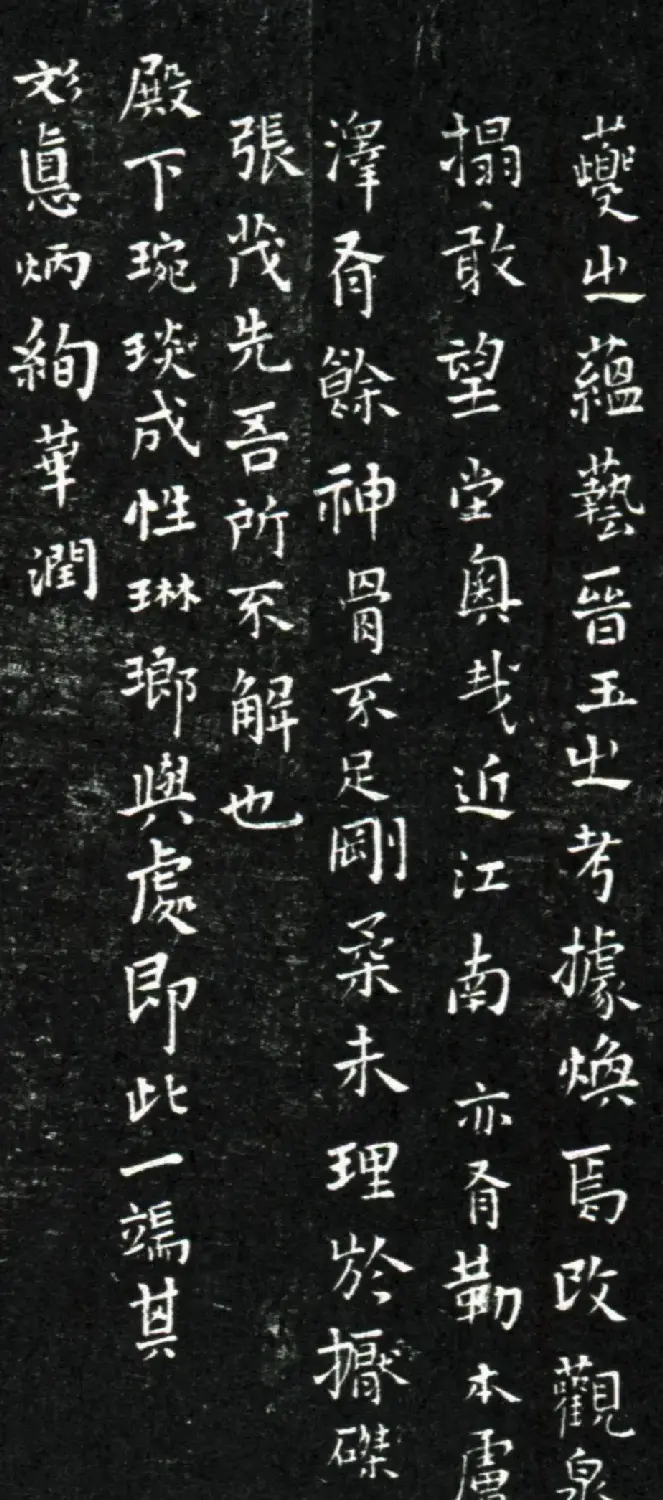 夔之蘊藝晉玉之考據煥焉改觀泉
搨敢望堂奧哉近江南亦有勒本膚
澤有餘神骨不足剛柔未理於擫磔
張茂先吾所不解也
殿下琬琰成性琳瑯與處即此一端其
彪炳絢華潤